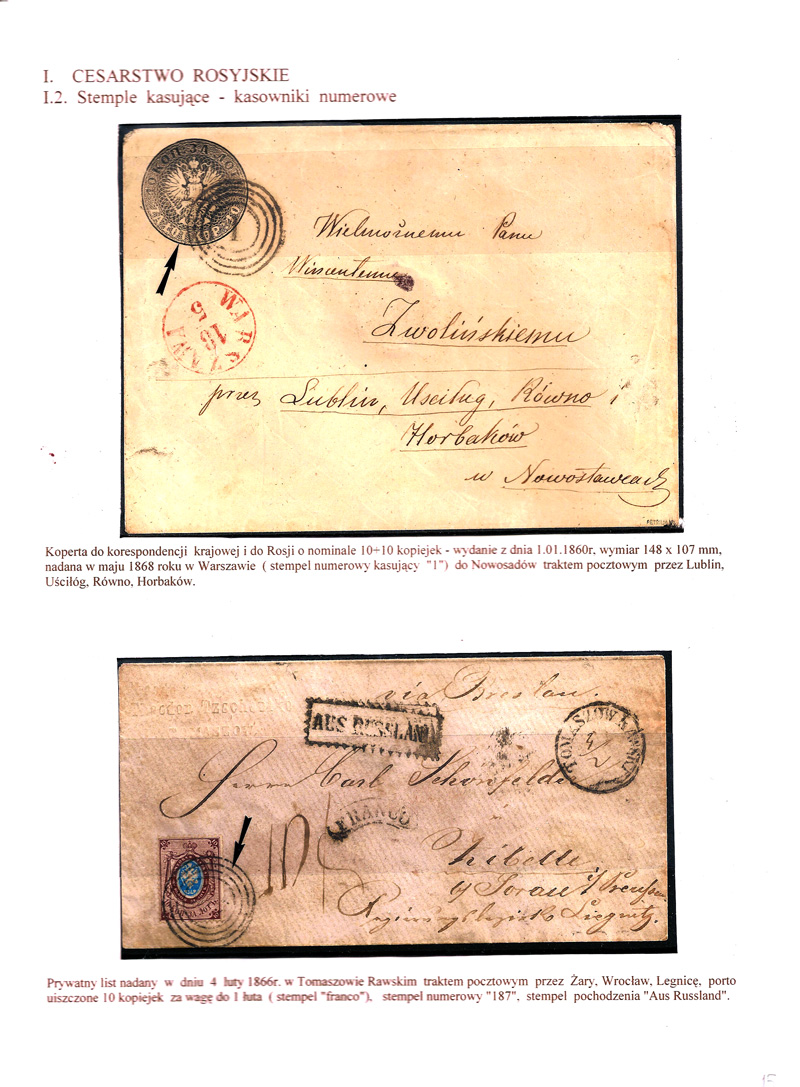 I. CESARSTWO ROSYJSKIE
I.2. Stemple kasujące - kasowniki numerowe
10 КОП. ЗА ЛОТЪ
1
WARSZAWA
16
5
Wielmożnemu Panu
Wincentemu
Zwolińskiemu
przez Lublin, Uściług, Równo i
Horbaków
w Nowostawcach
Koperta do korespondencji krajowej i do Rosji o nominale 10+10 kopiejek - wydanie z dnia 1.01.1860r, wymiar 148 x 107 mm,
nadana w maju 1868 roku w Warszawie ( stempel numerowy kasujący "1") do Nowosadów traktem pocztowym przez Lublin,
Uściłóg, Równo, Horbaków.
via Breslau.
AUS RUSSLAND
TOMASZÓW RAWSKI
4
2
Herrn Carl Schönfelder
FRANCO
Zibelle
Sorau
Liegnitz.
Prywatny list nadany w dniu 4 luty 1866r. w Tomaszowie Rawskim traktem pocztowym przez Żary, Wrocław, Legnicę, porto
uiszczone 10 kopiejek za wagę do 1 łuta ( stempel "franco"), stempel numerowy "187", stempel pochodzenia "Aus Russland".